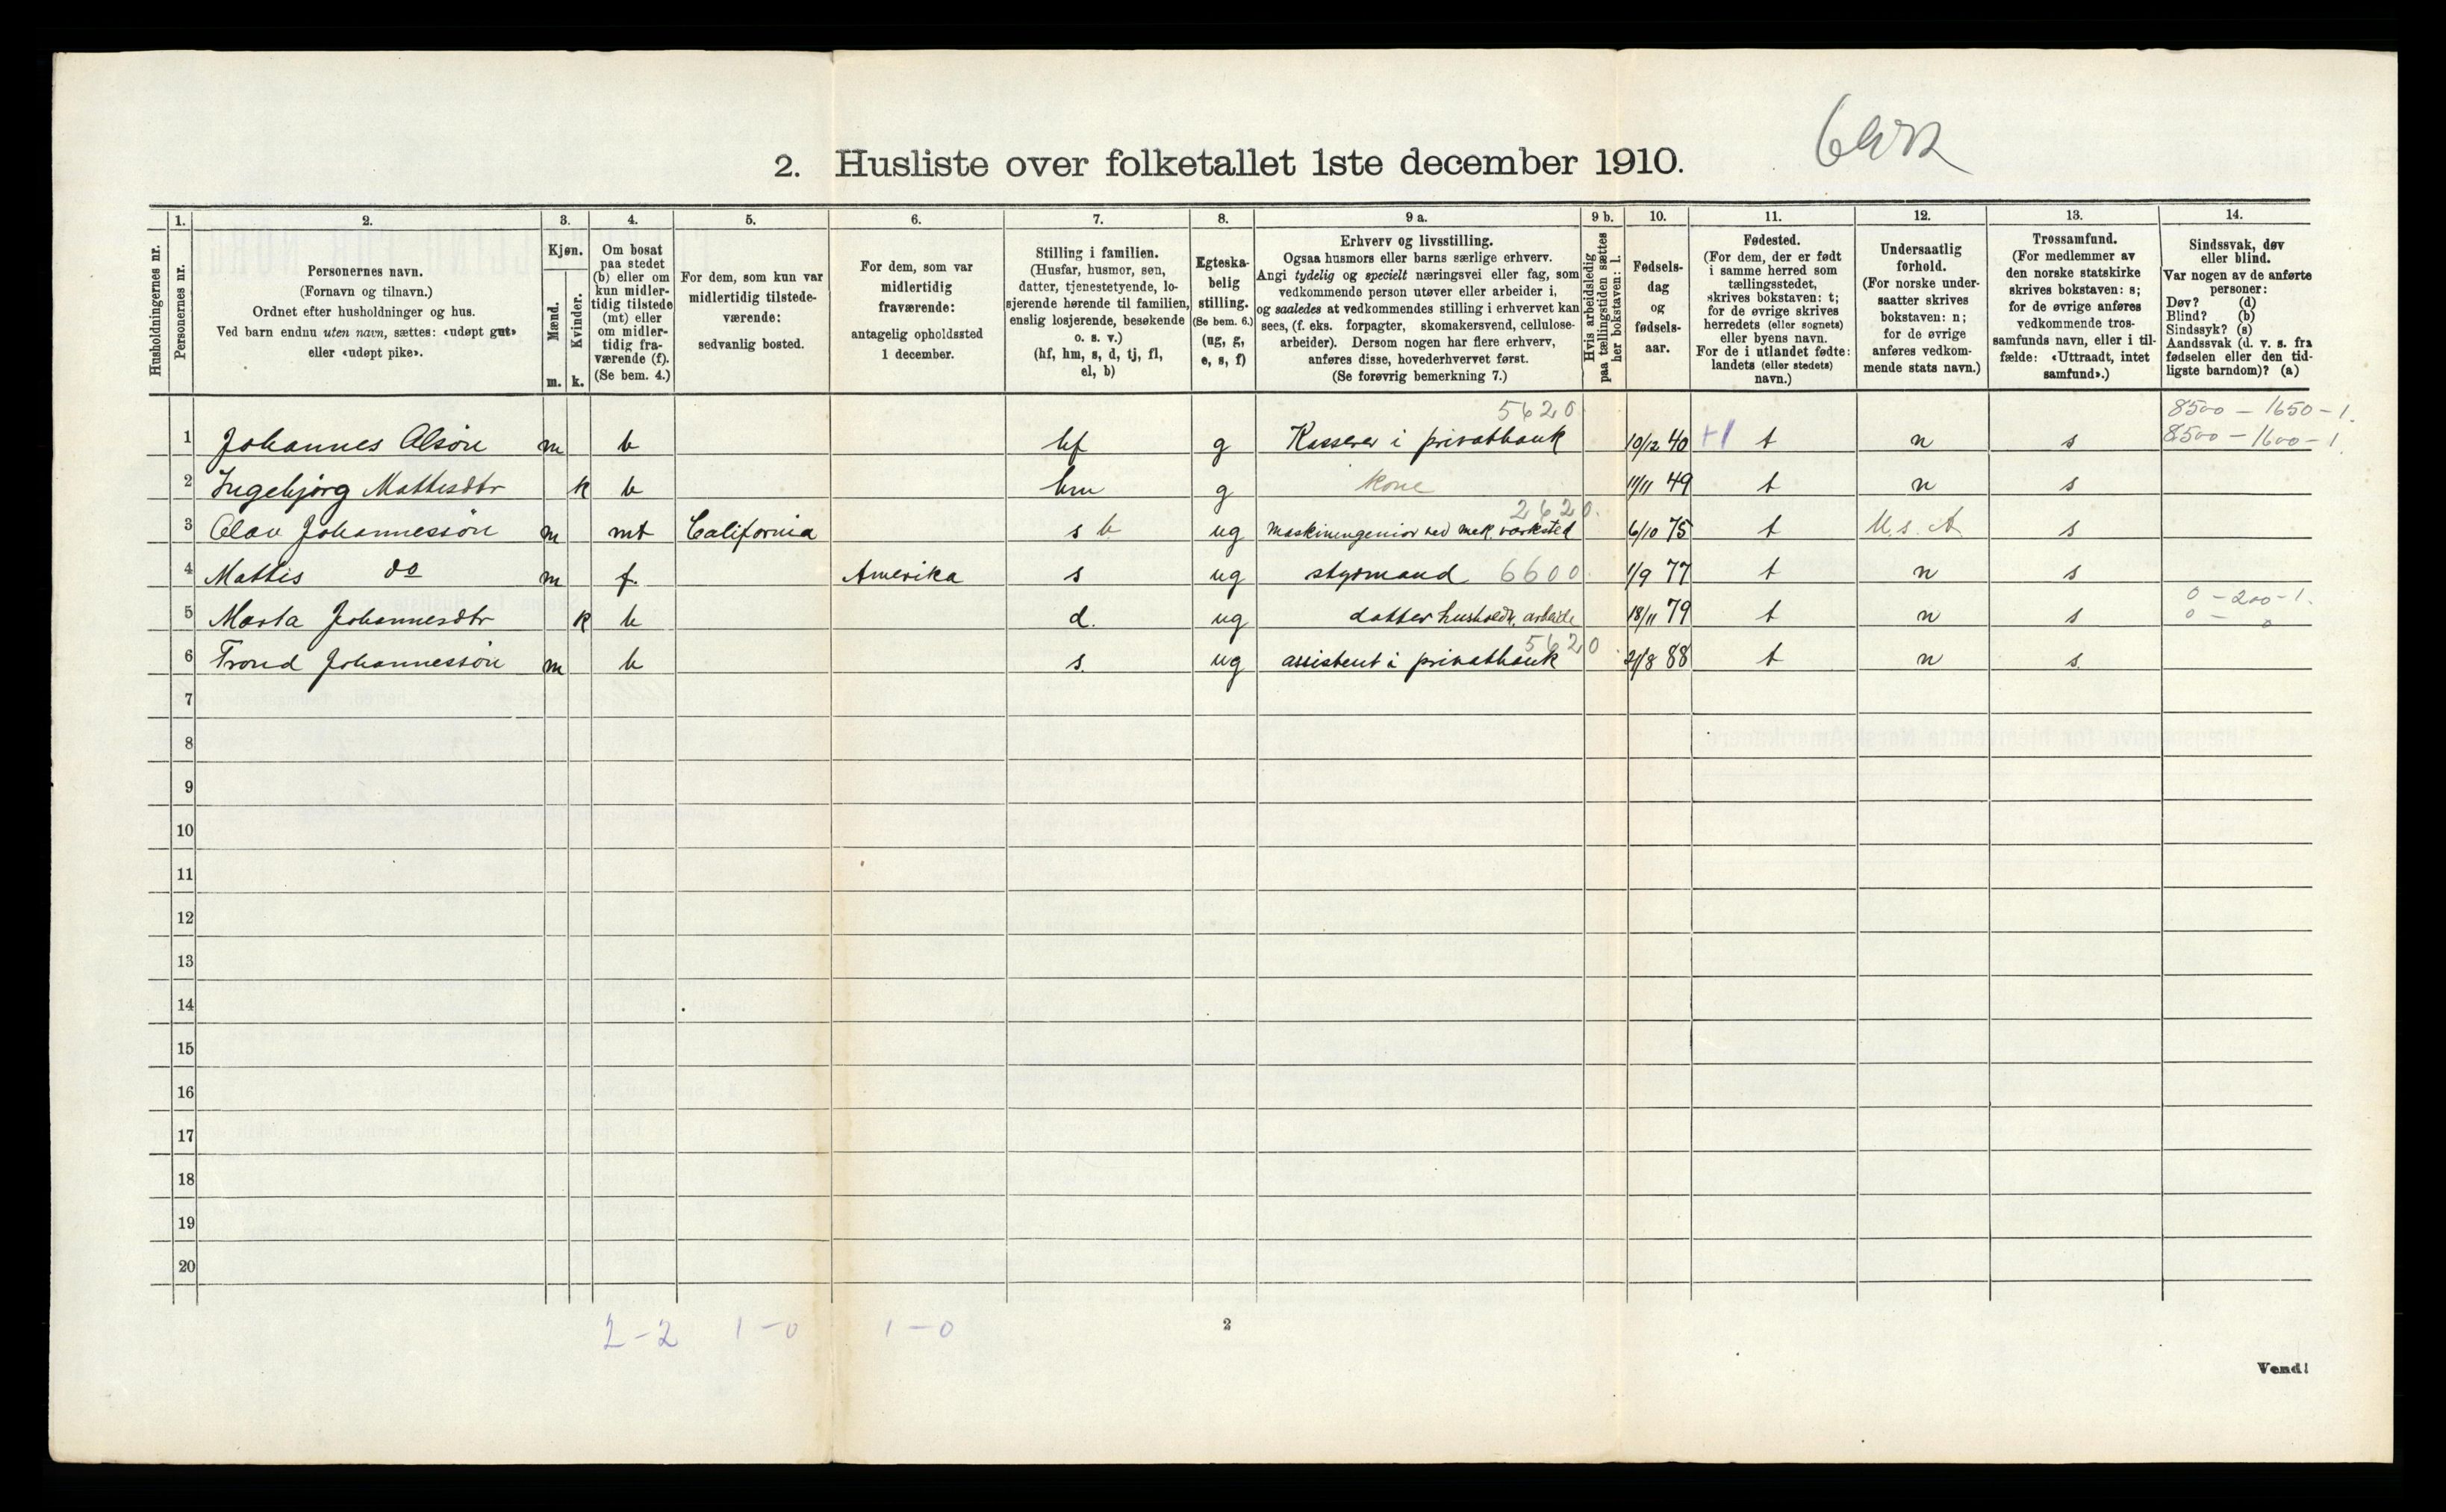 2. Husliste over folketallet 1ste december 1910.
Husholdningernes nr.
1. Personernes nr.
2. Personernes navn.
(Fornavn og tilnavn.)
Ordnet efter husholdninger og hus.
Ved barn endnu uten navn, sættes: «udøpt gut»
eller «udøpt pike».
3. Kjøn.
Mænd. m.
Kvinder. k.
4. Om bosat
paa stedet
(b) eller om
kun midler-
tidig tilstede
(mt) eller
om midler-
tidig fra-
værende (f).
(Se bem. 4.)
5. For dem, som kun var
midlertidig tilstede-
værende:
sedvanlig bosted.
6. For dem, som var
midlertidig
fraværende:
antagelig opholdssted
1 december.
7. Stilling i familien.
(Husfar, husmor, søn,
datter, tjenestetyende, lo-
sjerende hørende til familien,
enslig losjerende, besøkende
o. s. v.)
(hf, hm, s, d, tj, fl,
el, b)
8. Egteska-
belig
stilling.
(Se bem. 6.)
(ug, g,
e, s, f)
9 a. Erhverv og livsstilling.
Ogsaa husmors eller barns særlige erhverv.
Angi tydelig og specielt næringsvei eller fag, som
vedkommende person utøver eller arbeider i,
og saaledes at vedkommendes stilling i erhvervet kan
sees, (f. eks. forpagter, skomakersvend, cellulose-
arbeider). Dersom nogen har flere erhverv,
anføres disse, hovederhvervet først.
(Se forøvrig bemerkning 7.)
9 b. Hvis arbeidsledig
paa tællingstiden sættes
her bokstaven: l.
10. Fødsels-
dag
og
fødsels-
aar.
11. Fødested.
(For dem, der er født
i samme herred som
tællingsstedet,
skrives bokstaven: t;
for de øvrige skrives
herredets (eller sognets)
eller byens navn.
For de i utlandet fødte:
landets (eller stedets)
navn.)
12. Undersaatlig
forhold.
(For norske under-
saatter skrives
bokstaven: n;
for de øvrige
anføres vedkom-
mende stats navn.)
13. Trossamfund.
(For medlemmer av
den norske statskirke
skrives bokstaven: s;
for de øvrige anføres
vedkommende tros-
samfunds navn, eller i til-
fælde: «Uttraadt, intet
samfund».)
14. Sindssvak, døv
eller blind.
Var nogen av de anførte
personer:
Døv? (d)
Blind? (b)
Sindssyk? (s)
Aandssvak (d. v. s. fra
fødselen eller den tid-
ligste barndom)? (a)
5620 8500 - 1650 - 1.
1 Johannes Olsøn m b hf g Kasserer i privatbank 10/12 40 +1 t n s 8500 - 1600 - 1
2 Ingebjørg Mattisdtr k b hm g kone 11/11 49 t n s
2620.
3 Olav Johannessøn m mt California s b ug maskiningeniør ved mek. værksted 6/10 75 t U.s. A s
4 Mattis do m f. Amerika s ug styrmand 6600. 1/9 77 t n s
0 - 200 - 1.
5 Marta Johannesdtr k b d. ug datter husholdn. arbeide 18/11 79 t n s 0 - 0
5620.
6 Trond Johannessøn m b s. ug assistent i privatbank 21/8 88 t n s.
7
8
9
10
11
12
13
14
15
16
17
18
19
20
2 - 2 1 - 0 1 - 0
2
Vend!